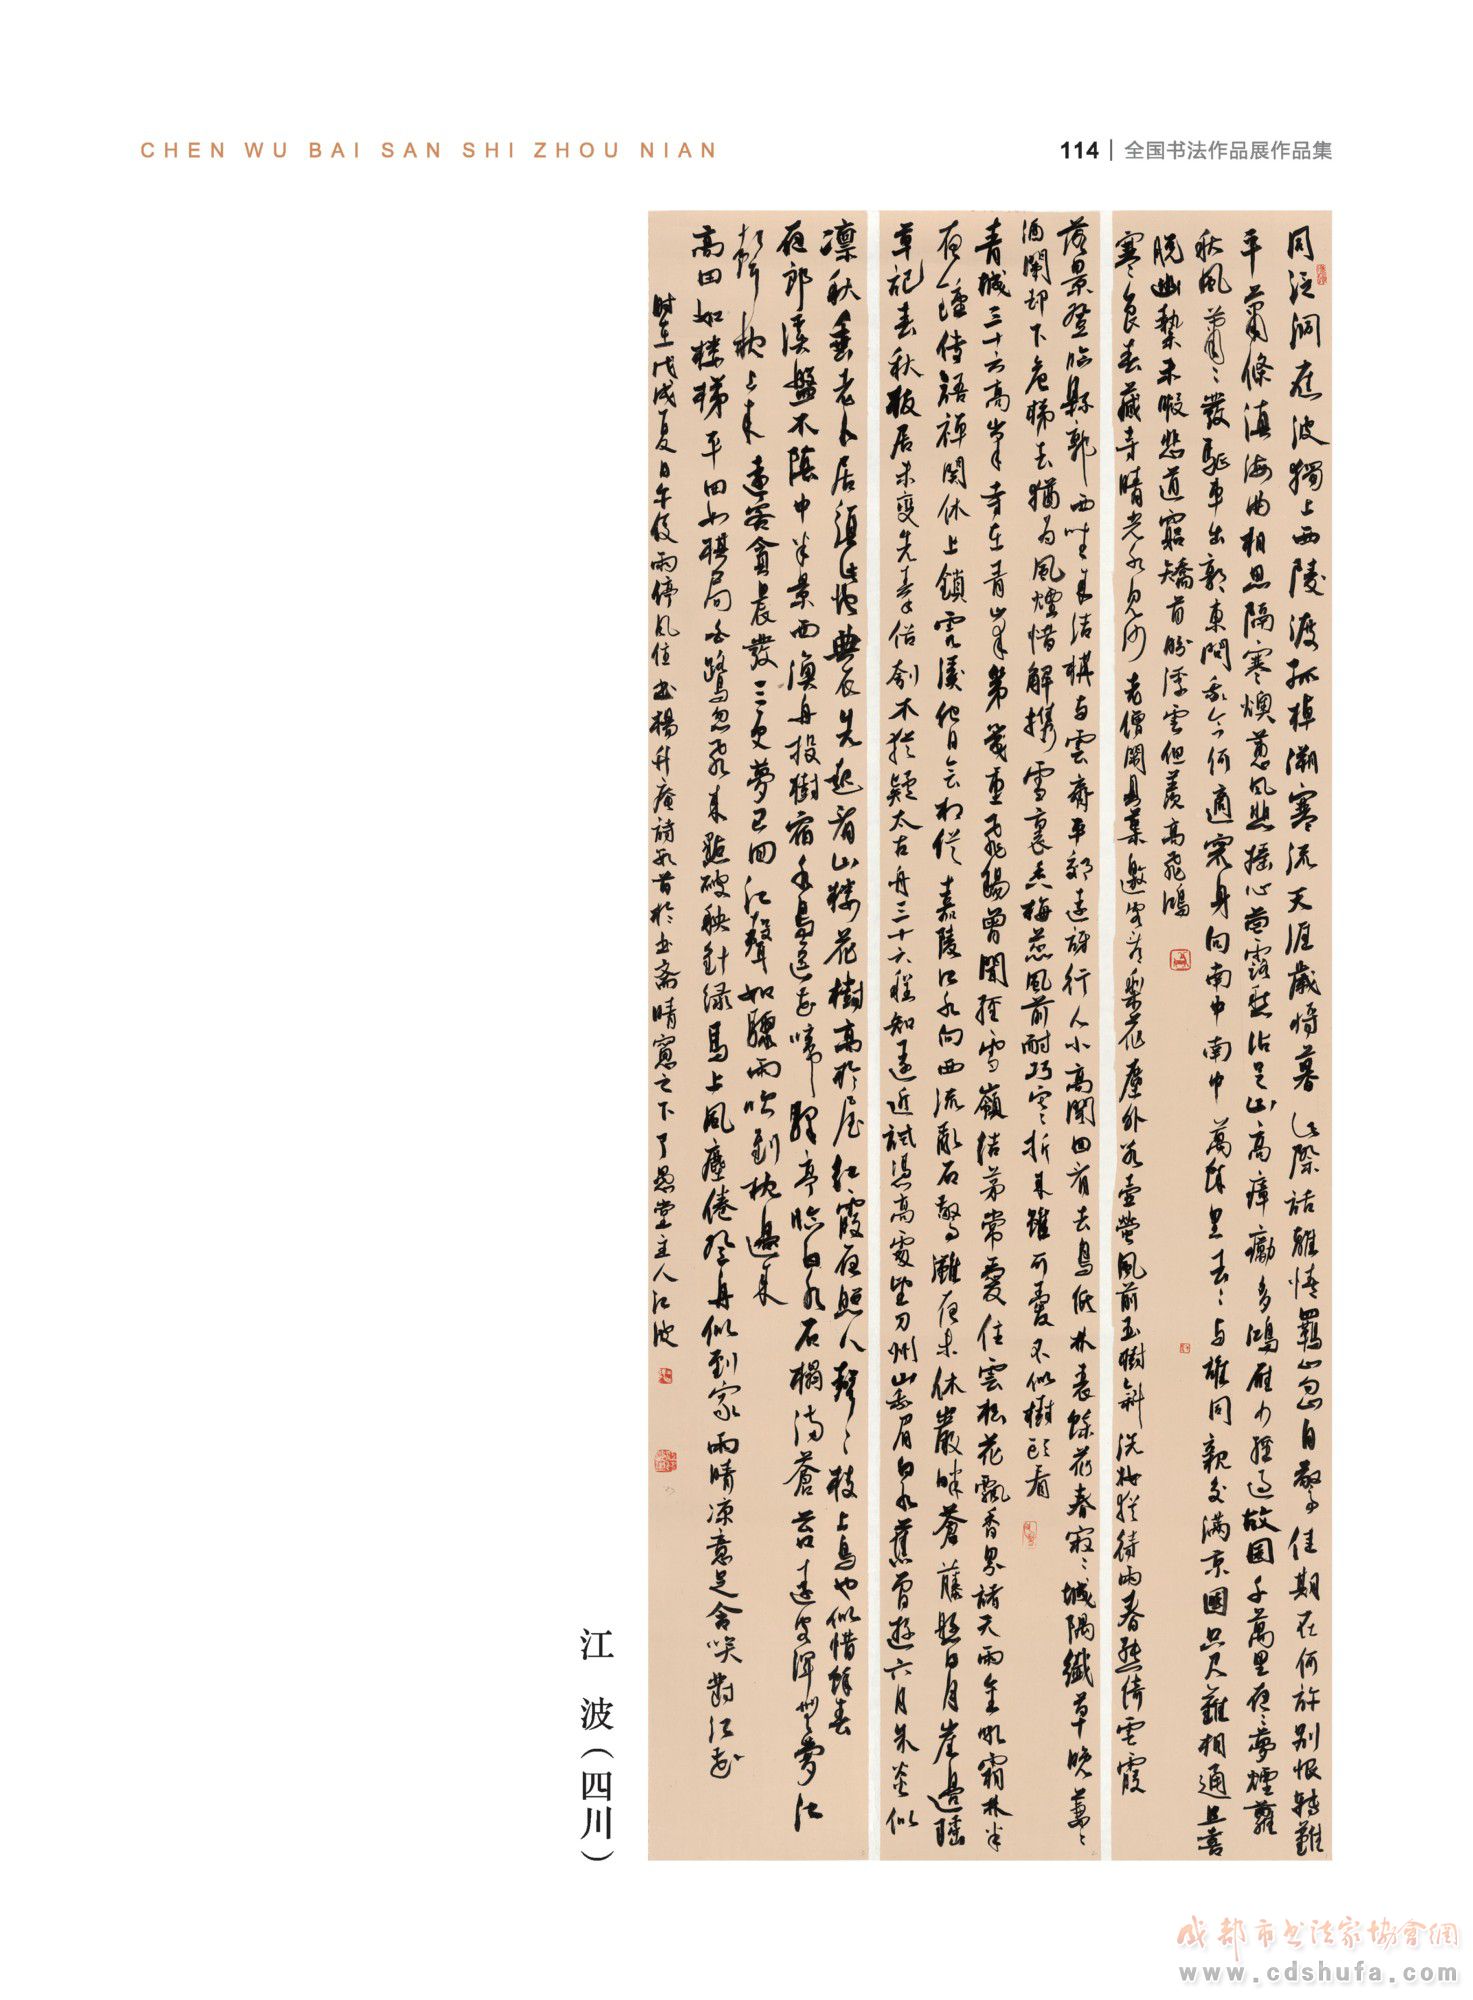 CHEN WU BAI SAN SHI ZHOU NIAN
114 | 全国书法作品展作品集
同泛洞庭波獨上西陵渡孤棹溯寒流天涯歲將暮此際話離情羈心忽自驚佳期在何許別恨轉難
平蕭條滇海曲相思隔寒燠蕙風悲搖心菌露愁沾足山高瘴癘多鴻雁少經過故園千萬里夜夜夢煙蘿
秋風蕭蕭發驅車出郭東問我今何適竄身向南中南中萬里去去與誰同親交滿京國咫尺難相通且喜
脫幽縶未暇悲道窮矯首盼浮雲但羨高飛鴻
寒食春藏寺晴光水見沙老僧開貝葉邀客落梨花塵外壺觴風前玉樹斜洗梅猶待雨春熟倚雲霞
落景登臨縣郭西結構與雲齊平郊遠訝行人小高閣回看去鳥低林表餘花春寂寂城隅纖草晚萋萋
酒闌却下危梯去猶為風煙惜解攜雪裏香梅蕊風前耐巧寒折來雖可愛不似樹頭看
青城三十六高峯寺在青峯第幾重飛錫曾聞經雪嶺結茅常愛住雲松花飄香界諸天雨金吼霜林半
夜鐘侍語禪關休上鎖雲溪他日會相從嘉陵江水向西流亂石驚灘夜未休巖畔蒼藤懸日月崖邊瑤
草記春秋板居未變先秦俗刳木猶疑太古舟三十六程知遠近試憑高處望刀州山眉白水舊曾遊六月朱炎似
凜秋垂老卜居須此地典衣先起看山樓花樹高於屋紅霞夜照人聲聲枝上鳥也似惜餘春
夜郎溪盤不隨中半景西漁舟投樹宿水鳥送花啼驛亭臨白水石榻滿蒼苔遠客渾無夢江
聲枕上來遠客貪晨發三更夢已回江聲如驟雨吹到枕邊來
高田如樓梯平田如棋局白鷺忽飛來點破秧針綠馬上風塵倦登舟似到家雨晴涼意足含笑對江花
時在戊戌夏日午後雨停風住書楊升庵詩數首於書齋晴窗之下了愚堂主人江波
江 波（四川）
成都市书法家协会网
www.cdshufa.com